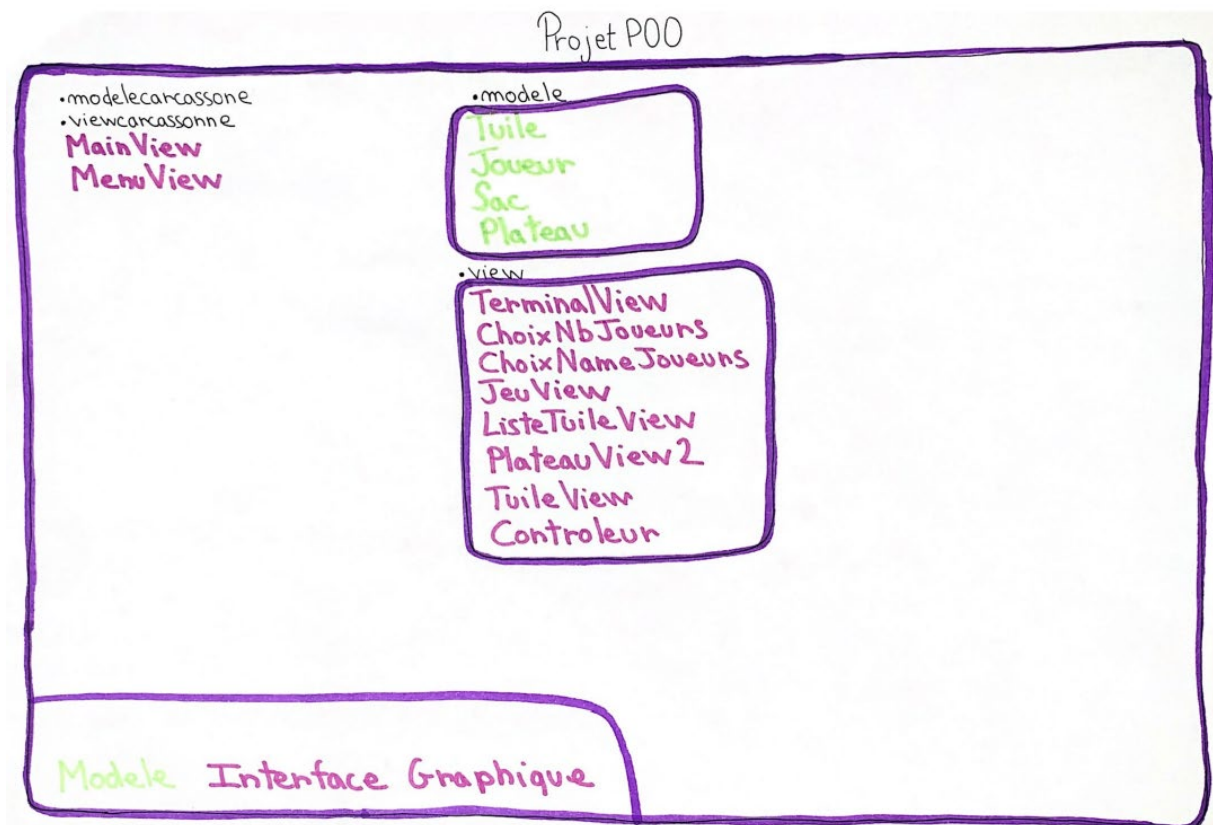 Projet POO
•modelecarcassone
•viewcarcassonne
MainView
MenuView
•modele
Tuile
Joueur
Sac
Plateau
•view
TerminalView
ChoixNbJoueurs
ChoixNameJoueurs
JeuView
ListeTuileView
PlateauView2
TuileView
Controleur
Modele Interface Graphique